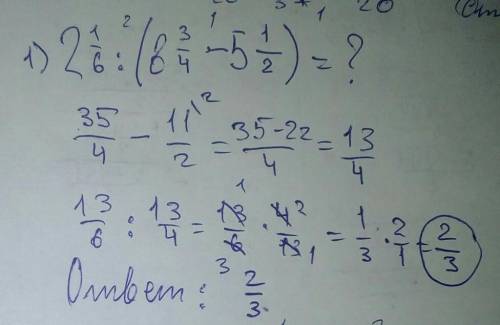 1) 2 1/6 : (8 3/4 - 5 1/2) = ?
35/4 - 11/2 = 35-22/4 = 13/4
13/6 : 13/4 = 13/6 · 4/13 = 1/3 · 2/1 = 2/3
Ответ: 2/3.